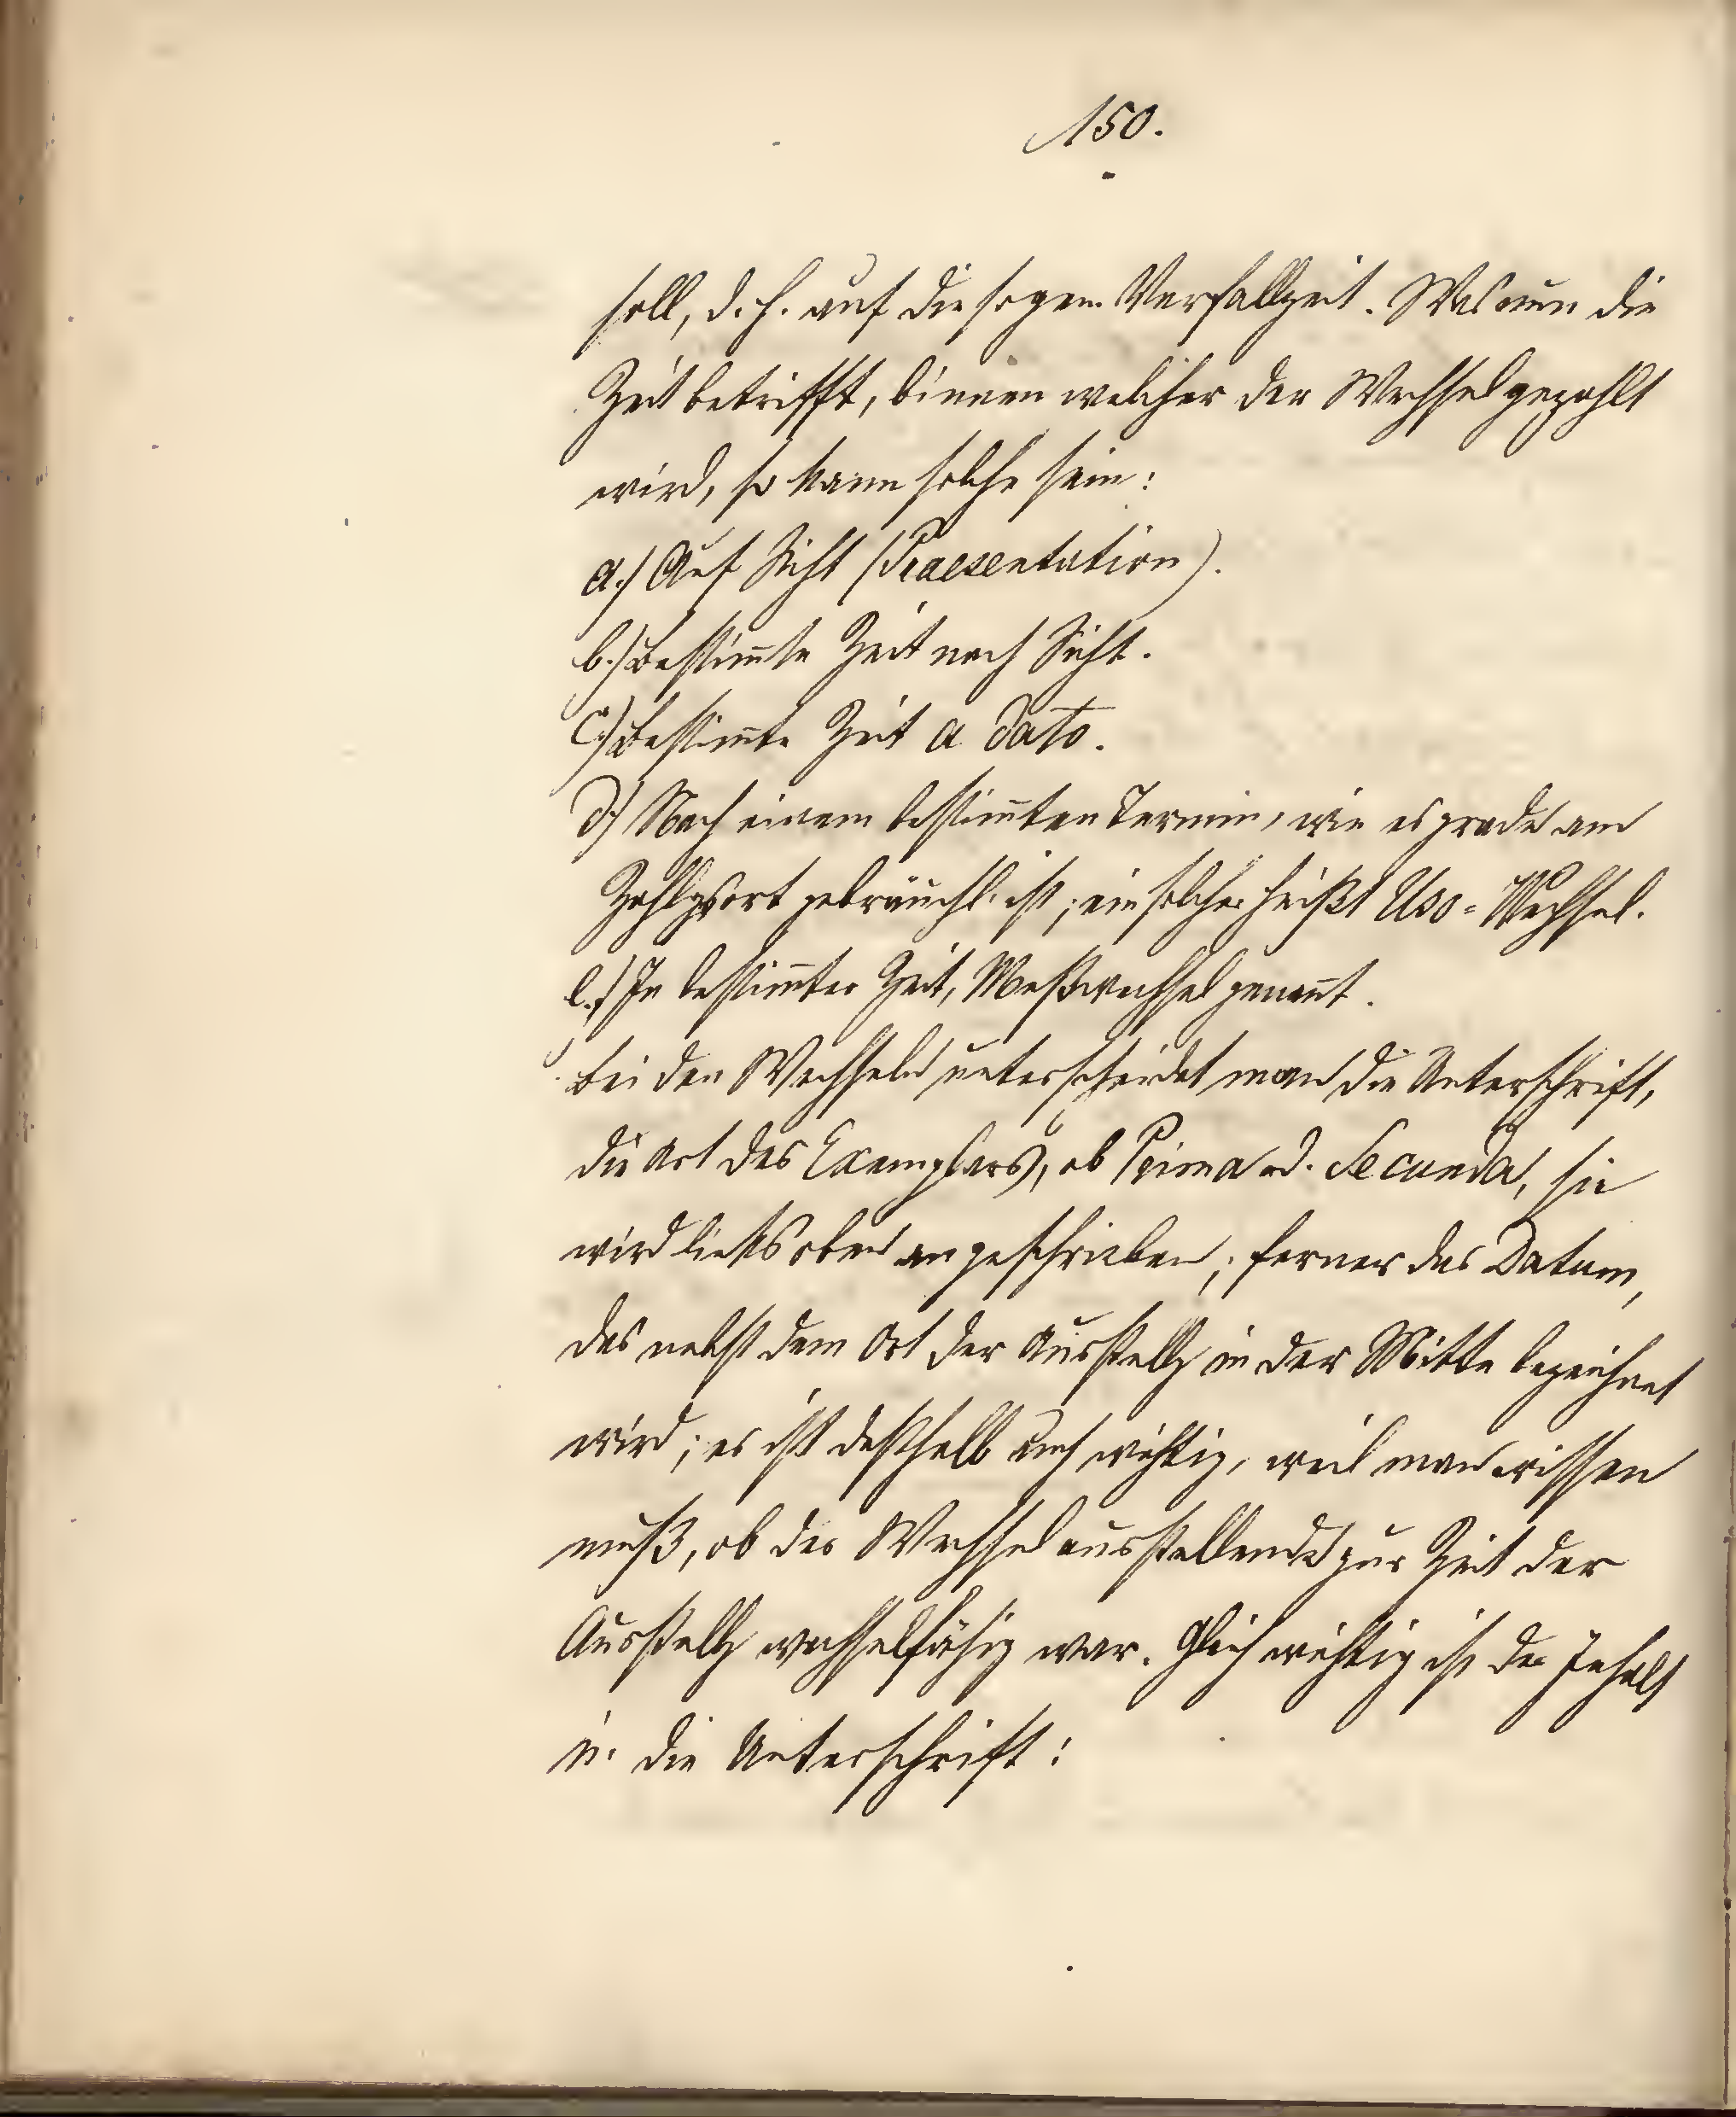 150.
soll, d. h. auf die sogen. Verfallzeit. Was nun die
Zeit betrifft, binnen welcher der Wechsel gezahlt
wird, so kann solche sein:
a.) Auf Sicht (Praesentation).
b.) Bestim̅te Zeit nach Sicht.
c.) Bestim̅te Zeit a dato.
d.) Nach einem bestim̅ten Termin, wie es grade am
Zahlgsort gebräuchl. ist; ein solcher heißt Uso-Wechsel.
e.) In bestim̅ter Zeit, Meßwechsel genan̅t.
Bei den Wechseln unterscheidet man die Unterschrift,
die Art des Exemplars, ob Prima od. Secunda, sie
wird links oben angeschrieben; ferner das Datum,
das nebst dem Ort der Ausstellg in der Mitte bezeichnet
wird; es ist deßhalb auch wichtig, weil man wissen
muß, ob der Wechselausstellende zur Zeit der
Ausstellg wechselfähig war. Gleich wichtig ist der Inhalt
u. die Unterschrift: